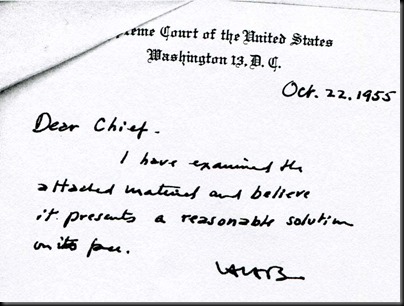 preme Court of the United States
Washington 13, D. C.
Oct. 22. 1955
Dear Chief -
I have examined the
attached material and believe
it presents a reasonable solution
on its face.